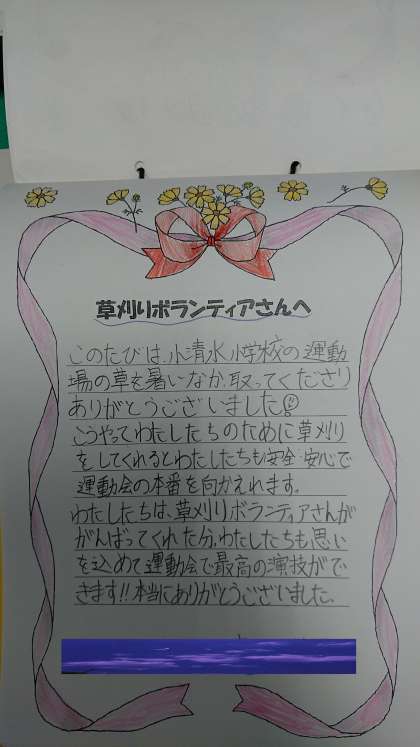 草刈りボランティアさんへ
このたびは、小清水小学校の運動
場の草を暑いなか、取ってくださり
ありがとうございました!!
こうやってわたしたちのために草刈り
をしてくれるとわたしたちも安全・安心で
運動会の本番を向かえれます。
わたしたちは、草刈りボランティアさんが
がんばってくれた分、わたしたちも思い
を込めて運動会で最高の演技がで
きます!!本当にありがとうございました。